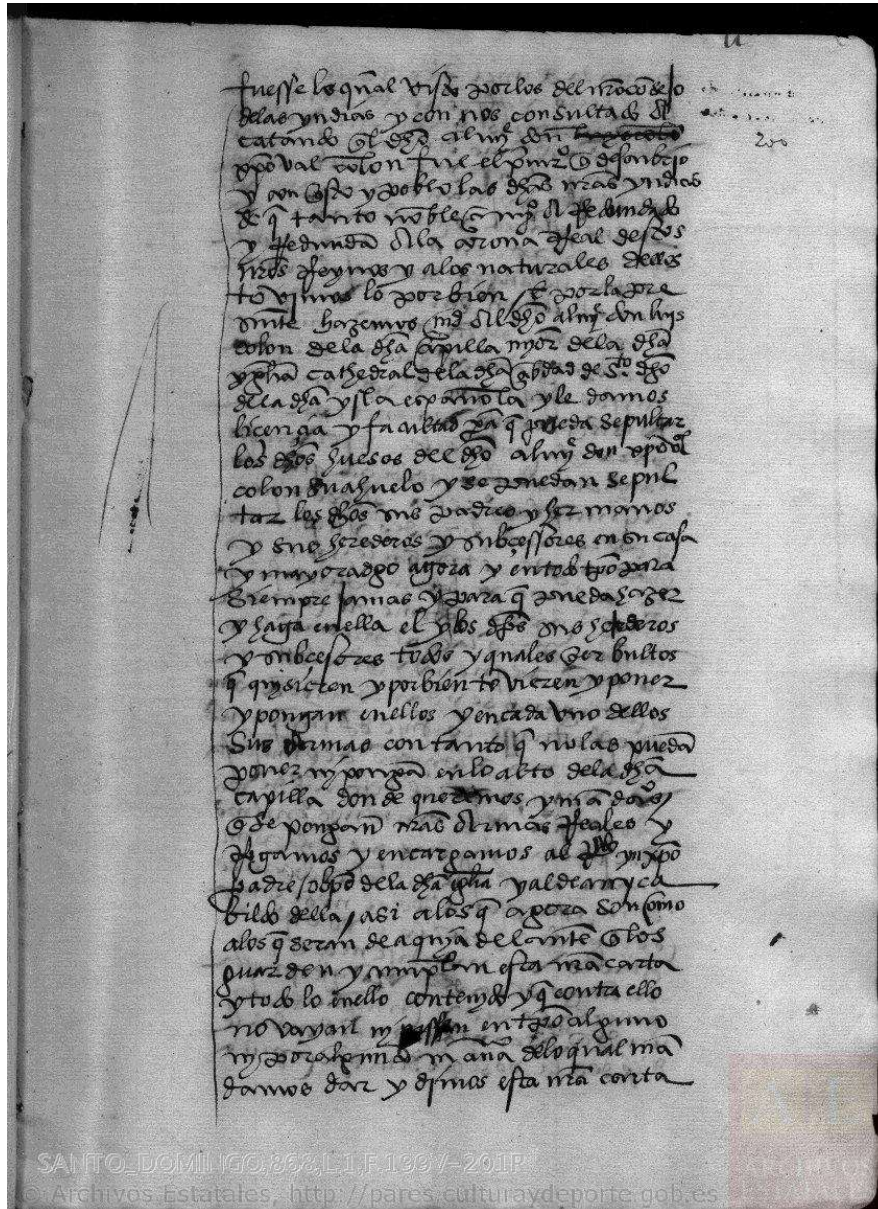 fuesse lo qual visto por los del nrō conseJo
delas yndias y con nos consultado A
catando q̄l dhō almyᵉ don
xpoval colon fue el primᵒ q̄ descubrio
y conqˢto y poblo las dhās nrās yndias
de q̄ tanto noble A Redundado
y Redunda A la corona Real destos
nrōs Reynos y alos naturales dellos
tovimos lo por bien E por la pre
sente hazemos mḏ Al dhō almyᵉ don luis
colon de la dhā capilla myor de la dhā
ygliā cathedral de la dhā çibdad de Sᵗᵒ dgō
de la dhā ysla española y le damos
liçençia y facultad pā q̄ pueda sepultar
los dhōs huesos del dhō almyᵉ don xpoᵛᵃˡ
colon su ahuelo y se puedan sepul
tar los dhōs sus padres y hermanos
y sus herederos y subçessores en su casa
y mayoradgo agora y en todo tpō para
siempre Jamas y para q̄ pueda hazer
y haga en ella el y los dhōs sus herederos
y subçesores todos y quales q̄er bultos
q̄ quysieren y por bien tovieren y poner
y pongan en ellos y en cada uno dellos
sus Armas con tanto q̄ no las puedā
poner ny pongā en lo alto de la dhā
capilla donde queremos y mādamᵒs
q̄ se pongan nrās Armas Reales y
Rogamos y encargamos al Rdo yn xpō
padre obpō de la dhā ygliā y al dean y ca
bildo della / asi alos q̄ agora son como
alos q̄ seran de aqui adelante q̄ los
guarden y cunplan esta nrā carta
y todo lo en ello contenydo y q̄ contra ello
no vayan ny passen en tpō alguno
ny por alguna manā delo qual man
damos dar y dimos esta nrā carta
200
SANTO_DOMINGO,868,L.1,F.199V-201R
© Archivos Estatales, http://pares.culturaydeporte.gob.es